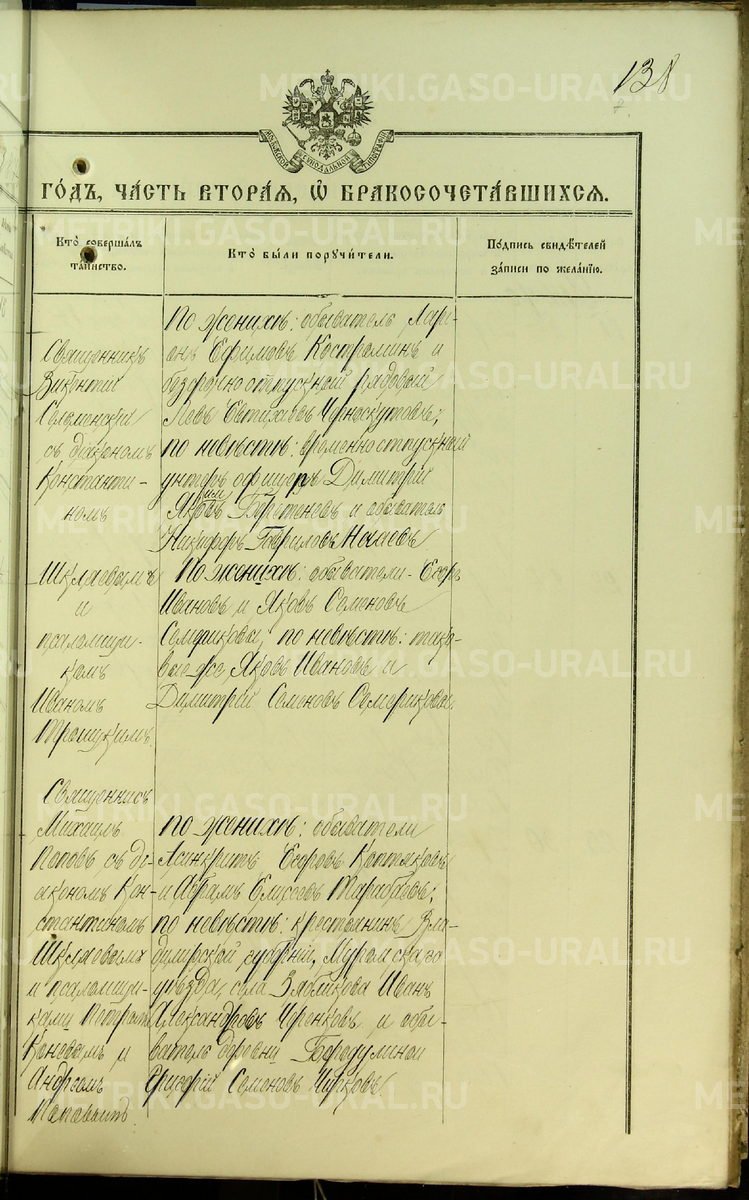 138
МОСКОВСКОЙ СѴНОДАЛЬНОЙ ТИПОГРАФІИ
ГО́ДЪ, ЧА́СТЬ ВТОРА́Я, Ѡ БРАКОСОЧЕТА́ВШИХСЯ.
Кто̀ соверша́лъ
та́инство.
Кто̀ бы́ли поручи́тели.
По́дпись свидѣ́телей
за́писи по жела́нію.
Священникъ
Викентій
Селменскій
съ діакономъ
Константи-
номъ
Шкляевымъ
и
псаломщи-
комъ
Иваномъ
По женихѣ: обыватель Лари-
онъ Ефимовъ Костроминъ и
безсрочно отпускный рядовый
Левъ Евтихіевъ Черноскутовъ;
по невѣстѣ: временно отпускный
унтеръ офицеръ Димитрій
Яковлевъ и обыватель
Никифоръ Гавриловъ
По женихѣ: обыватели Егоръ
Ивановъ и Яковъ Семеновъ
Семериковы; по невѣстѣ: тако-
вые-же Яковъ Ивановъ и
Димитрій Семеновъ Семериковы.
Священникъ
Михаилъ
Поповъ съ ді-
акономъ Кон-
стантиномъ
Шкляевымъ
и псаломщи-
ками Петромъ
Коневымъ и
Андреемъ
Поповымъ.
По женихѣ: обыватели
Асинкритъ Егоровъ Коптяковъ
и Абрамъ Елисеевъ
по невѣстѣ: крестьянинъ Вла-
димірской губерніи, Муромскаго
уѣзда, села Зябликова Иванъ
Александровъ Черенковъ и обы-
ватель деревни Бородулиной
Григорій Семеновъ Чирковъ.
METRIKI.GASO-URAL.RU